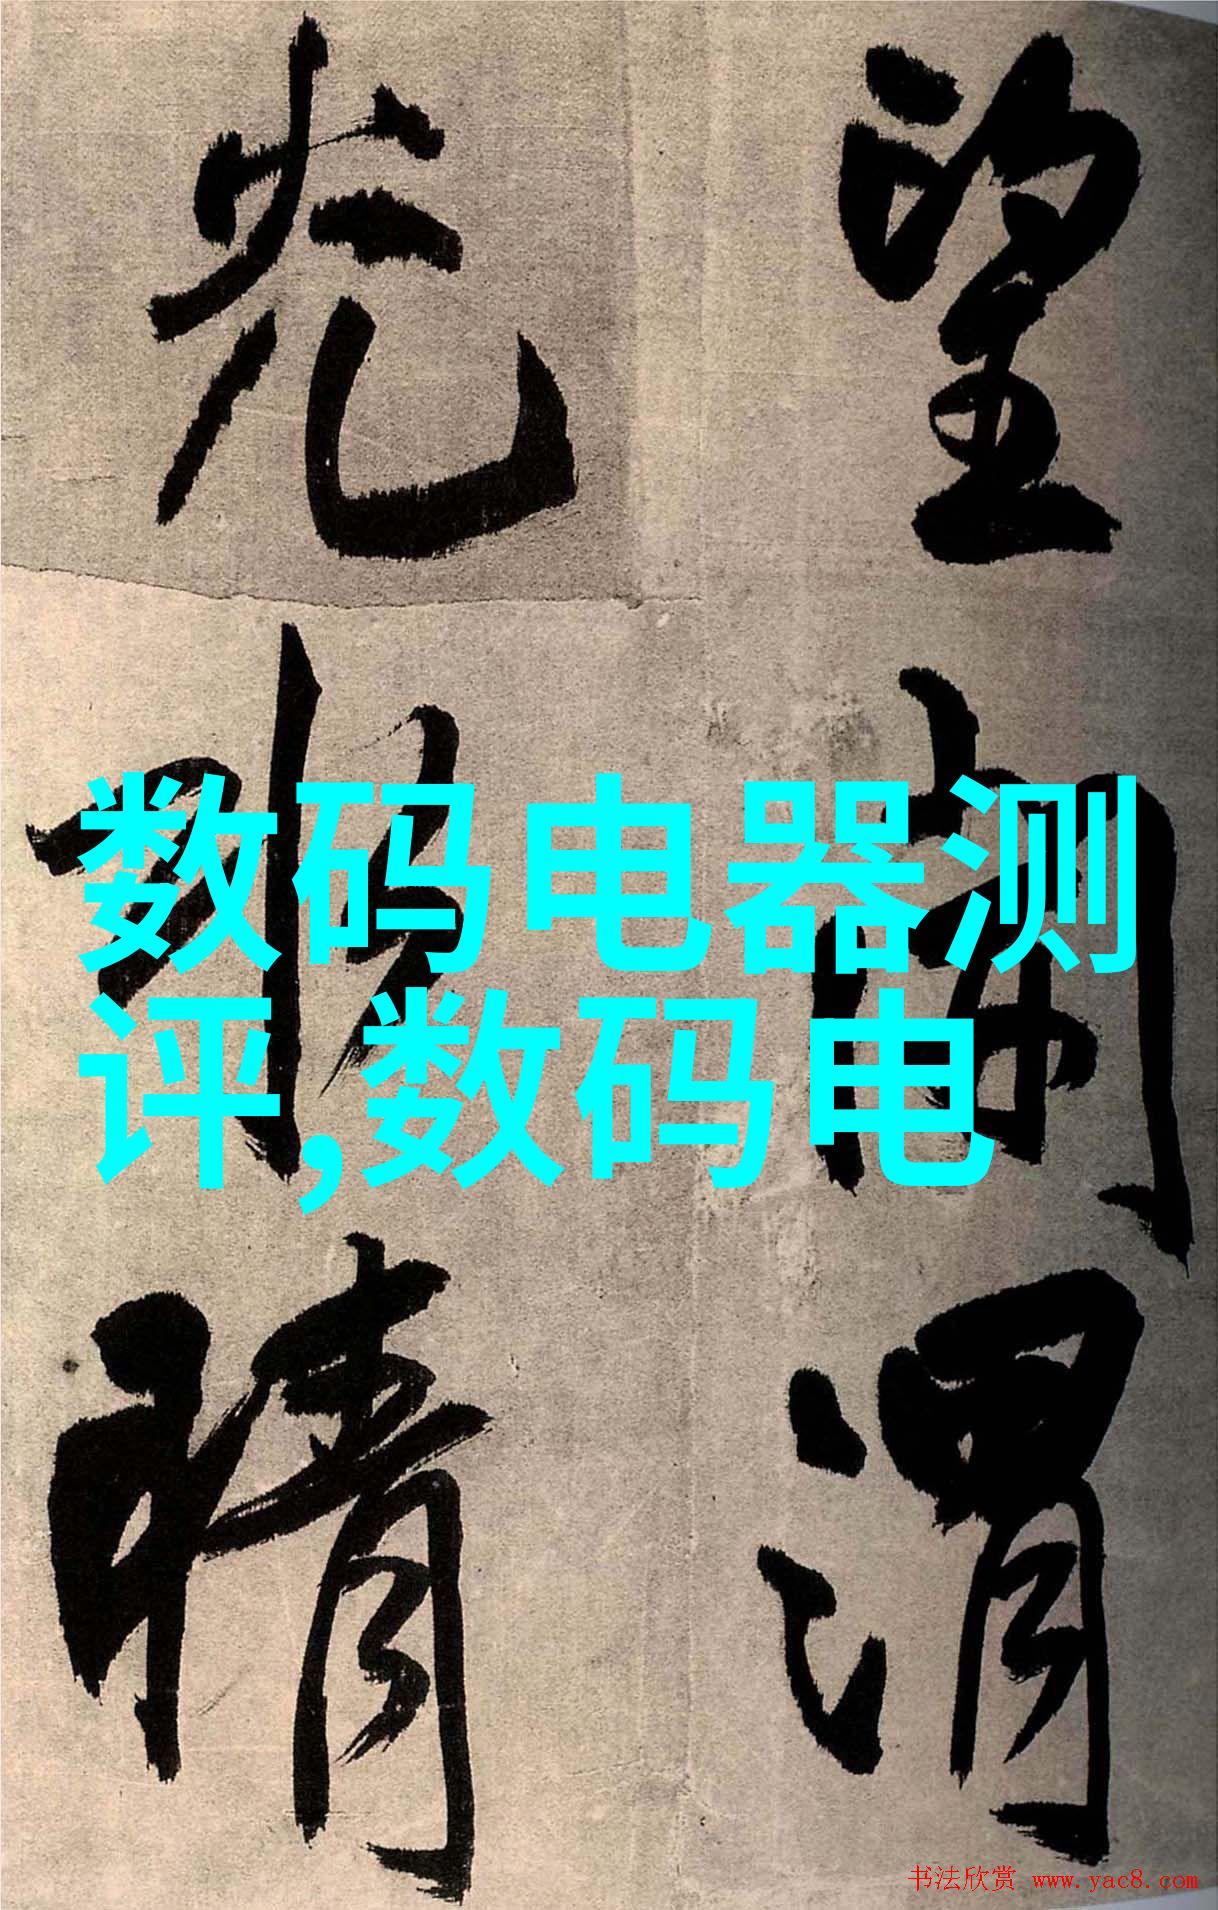 望 渭
光 晴
数码电器测
评,数码电
书法欣赏 www.yac8.com